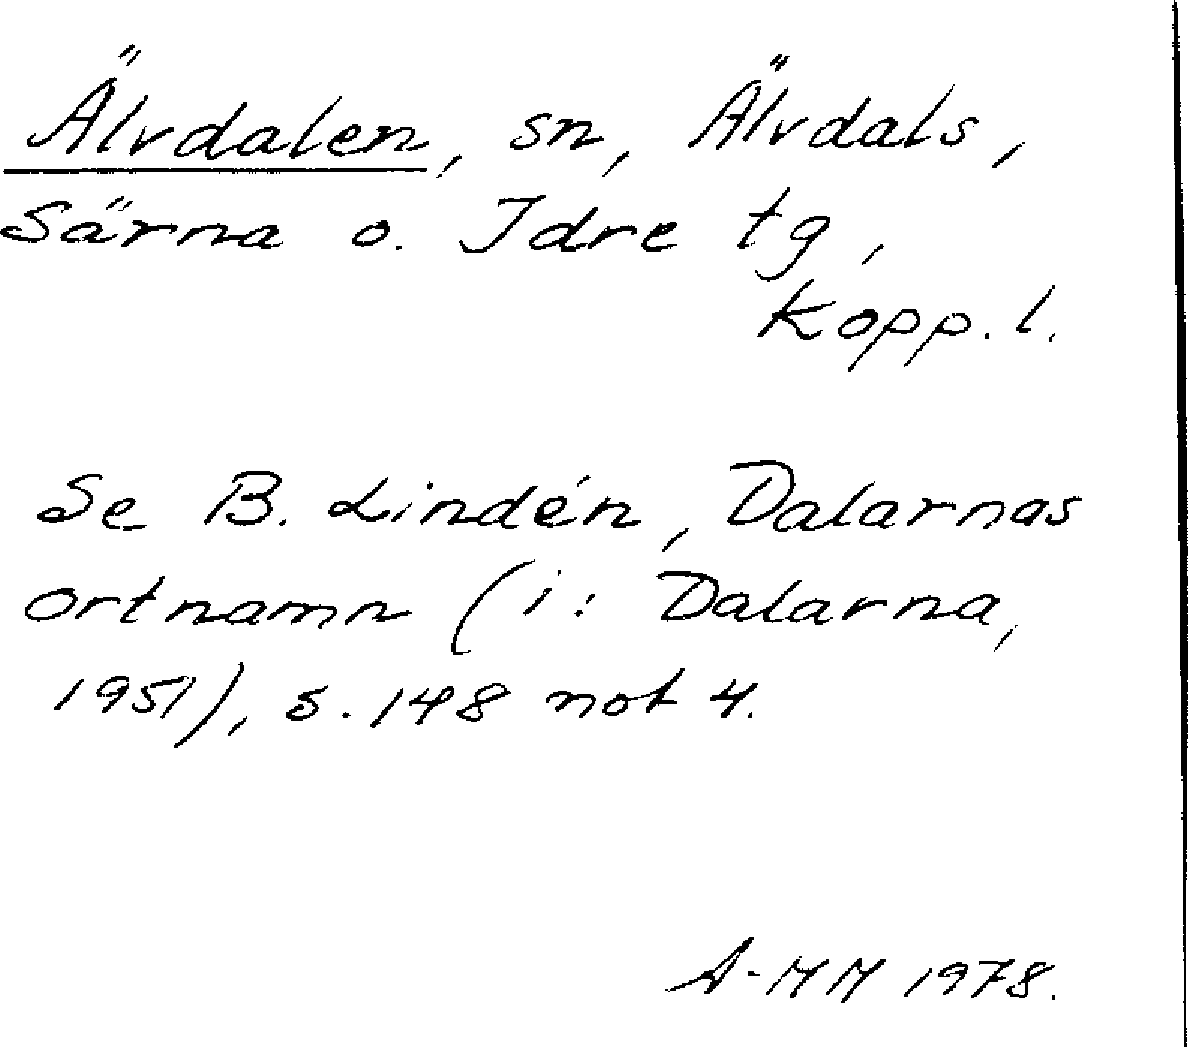 Älvdalen, sn, Älvdals,
Särna o. Idre tg,
Kopp. l.
Se B. Lindén, Dalarnas
ortnamn (i: Dalarna,
1951), s. 148 not 4.
A-MM 1978.